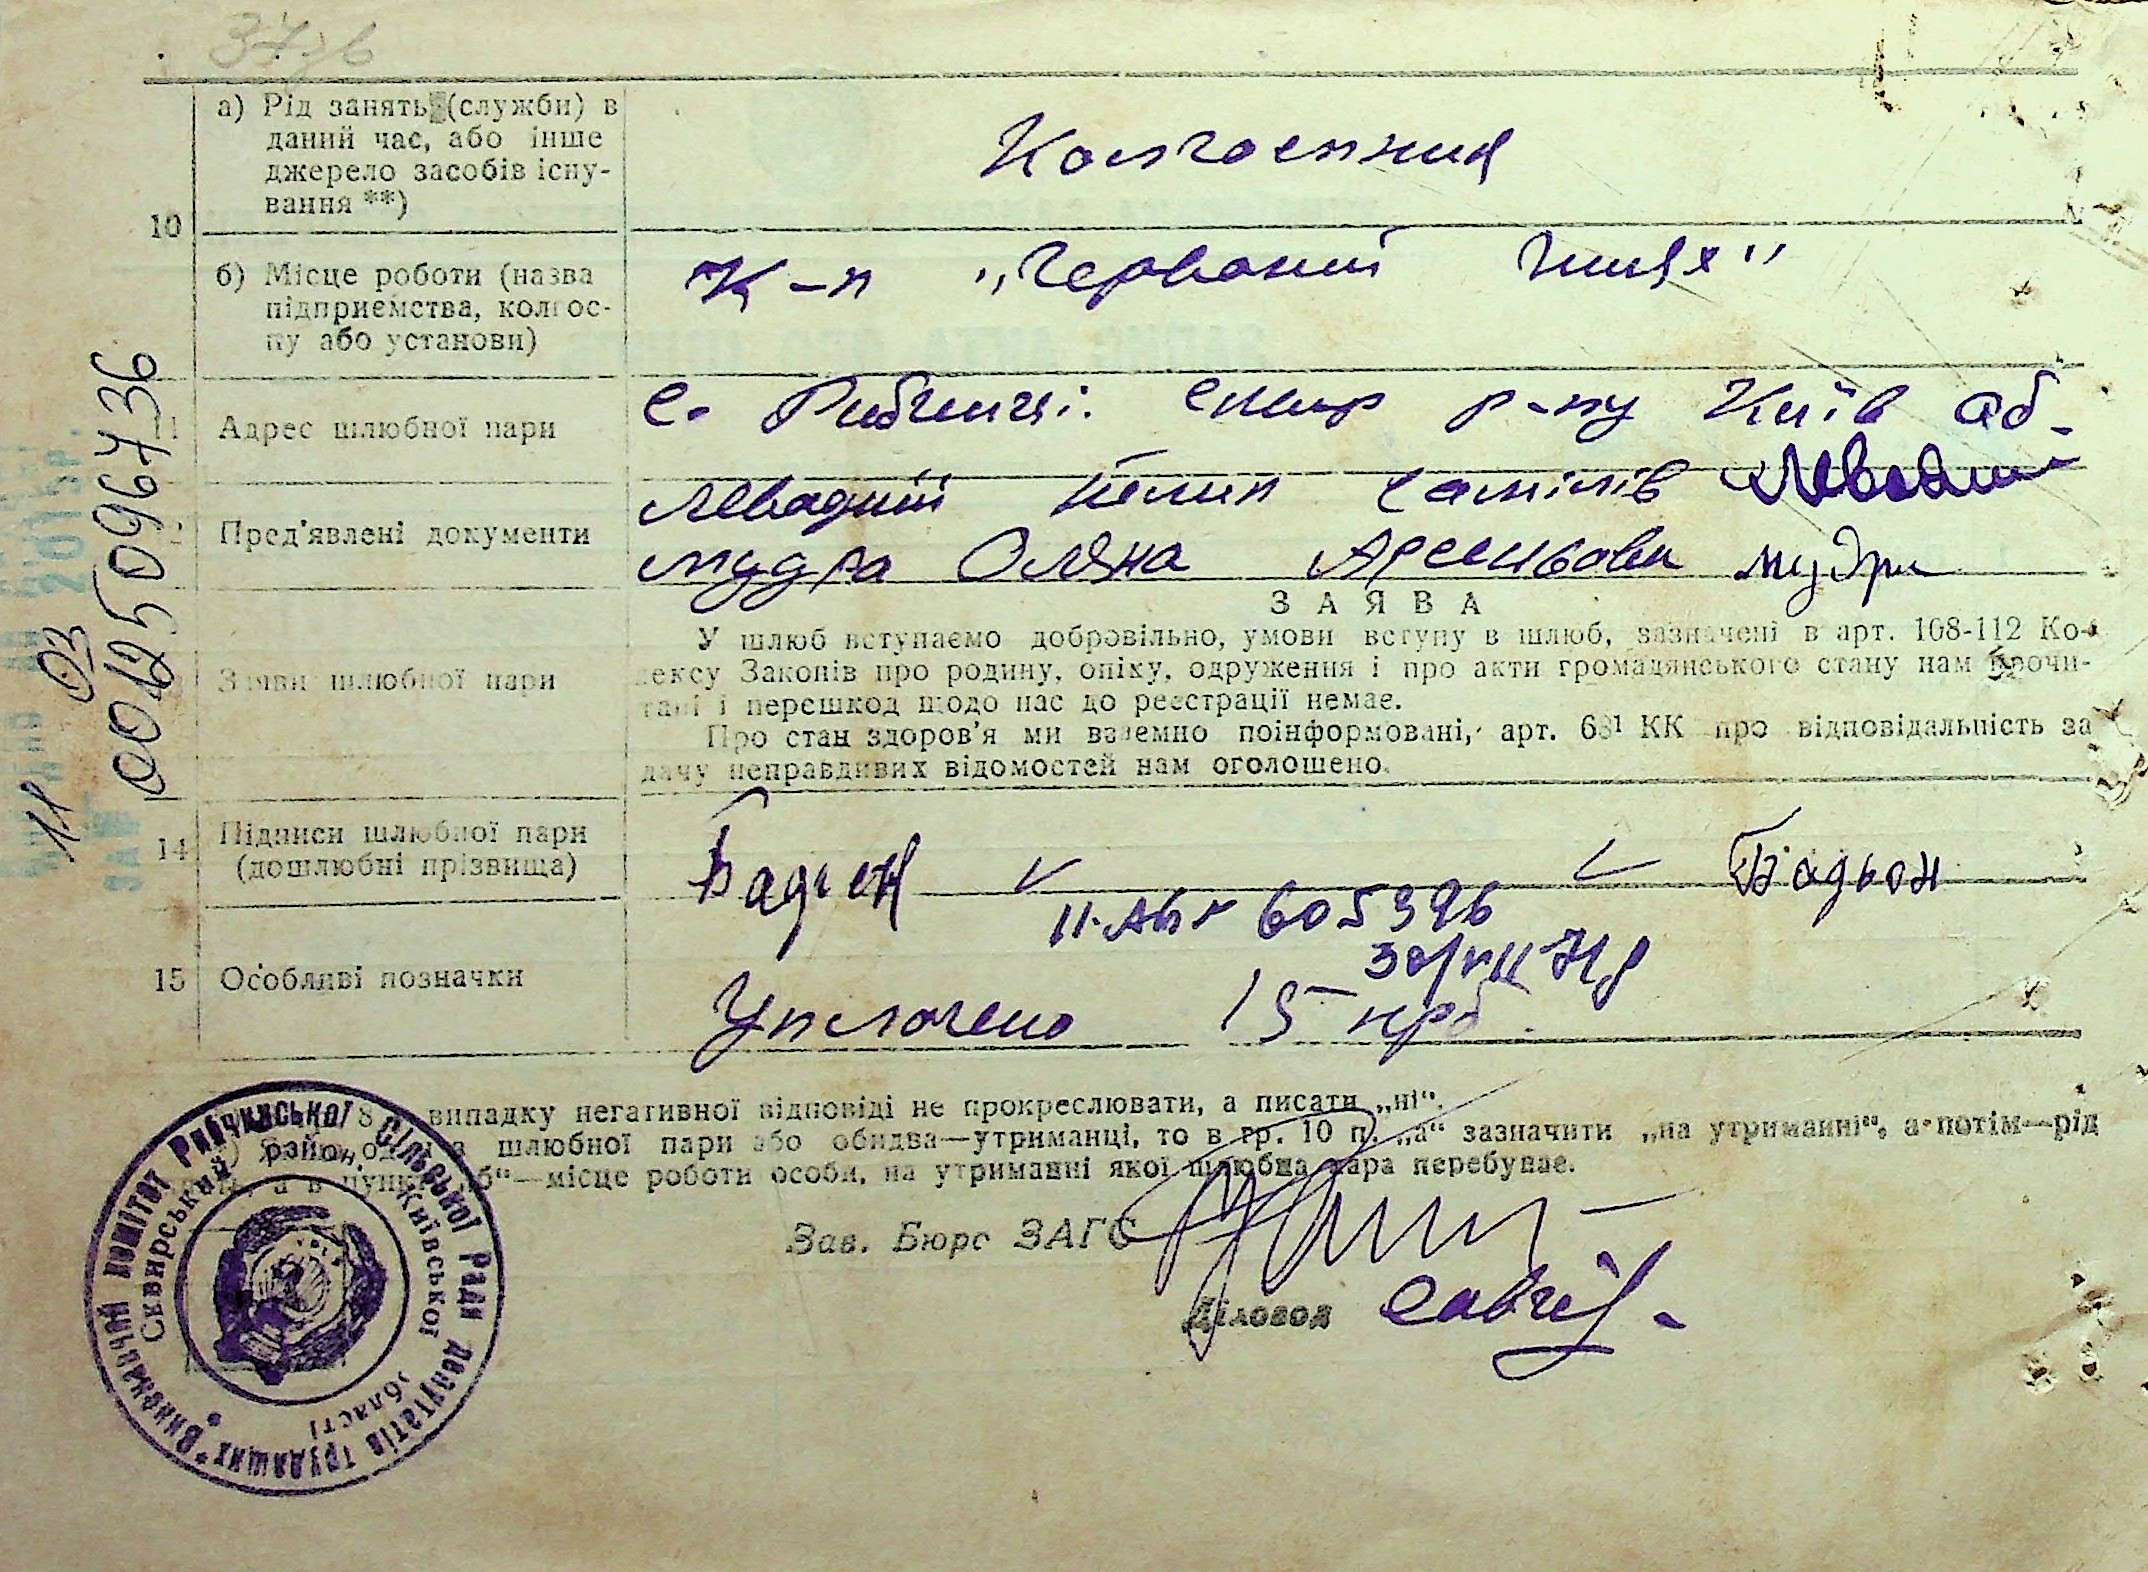 а) Рід занять (служби) в
даний час, або інше
джерело засобів існу-
вання **)
Колгоспниця
10
б) Місце роботи (назва
підприємства, колгос-
пу або установи)
К-п „Червоний шлях"
11 Адрес шлюбної пари
с. Рибчинці. сквир р-ну Київ об
Пред'явлені документи
Левадний
мудра Оляна
З А Я В А
У шлюб вступаємо добровільно, умови вступу в шлюб, зазначені в арт. 108-112 Ко-
дексу Законів про родину, опіку, одруження і про акти громадянського стану нам прочи-
тані і перешкод щодо нас до реєстрації немає.
Про стан здоров'я ми взаємно поінформовані, арт. 68¹ КК про відповідальність за
дачу неправдивих відомостей нам оголошено.
Заяви шлюбної пари
14 Підписи шлюбної пари
(дошлюбні прізвища)
Бадьон
605396
15 Особливі позначки
Уплочено 15 крб.
випадку негативної відповіді не прокреслювати, а писати „ні".
шлюбної пари або обидва—утриманці, то в гр. 10 п. „а" зазначити „на утриманні", а потім—рід
а в пункті „б"—місце роботи особи, на утриманні якої шлюбна пара перебуває.
Зав. Бюро ЗАГС
Діловод
Виконавчий комітет Рибчинської Сільської Ради депутатів трудящих
Сквирський район, Київської області
11 03
00125096736